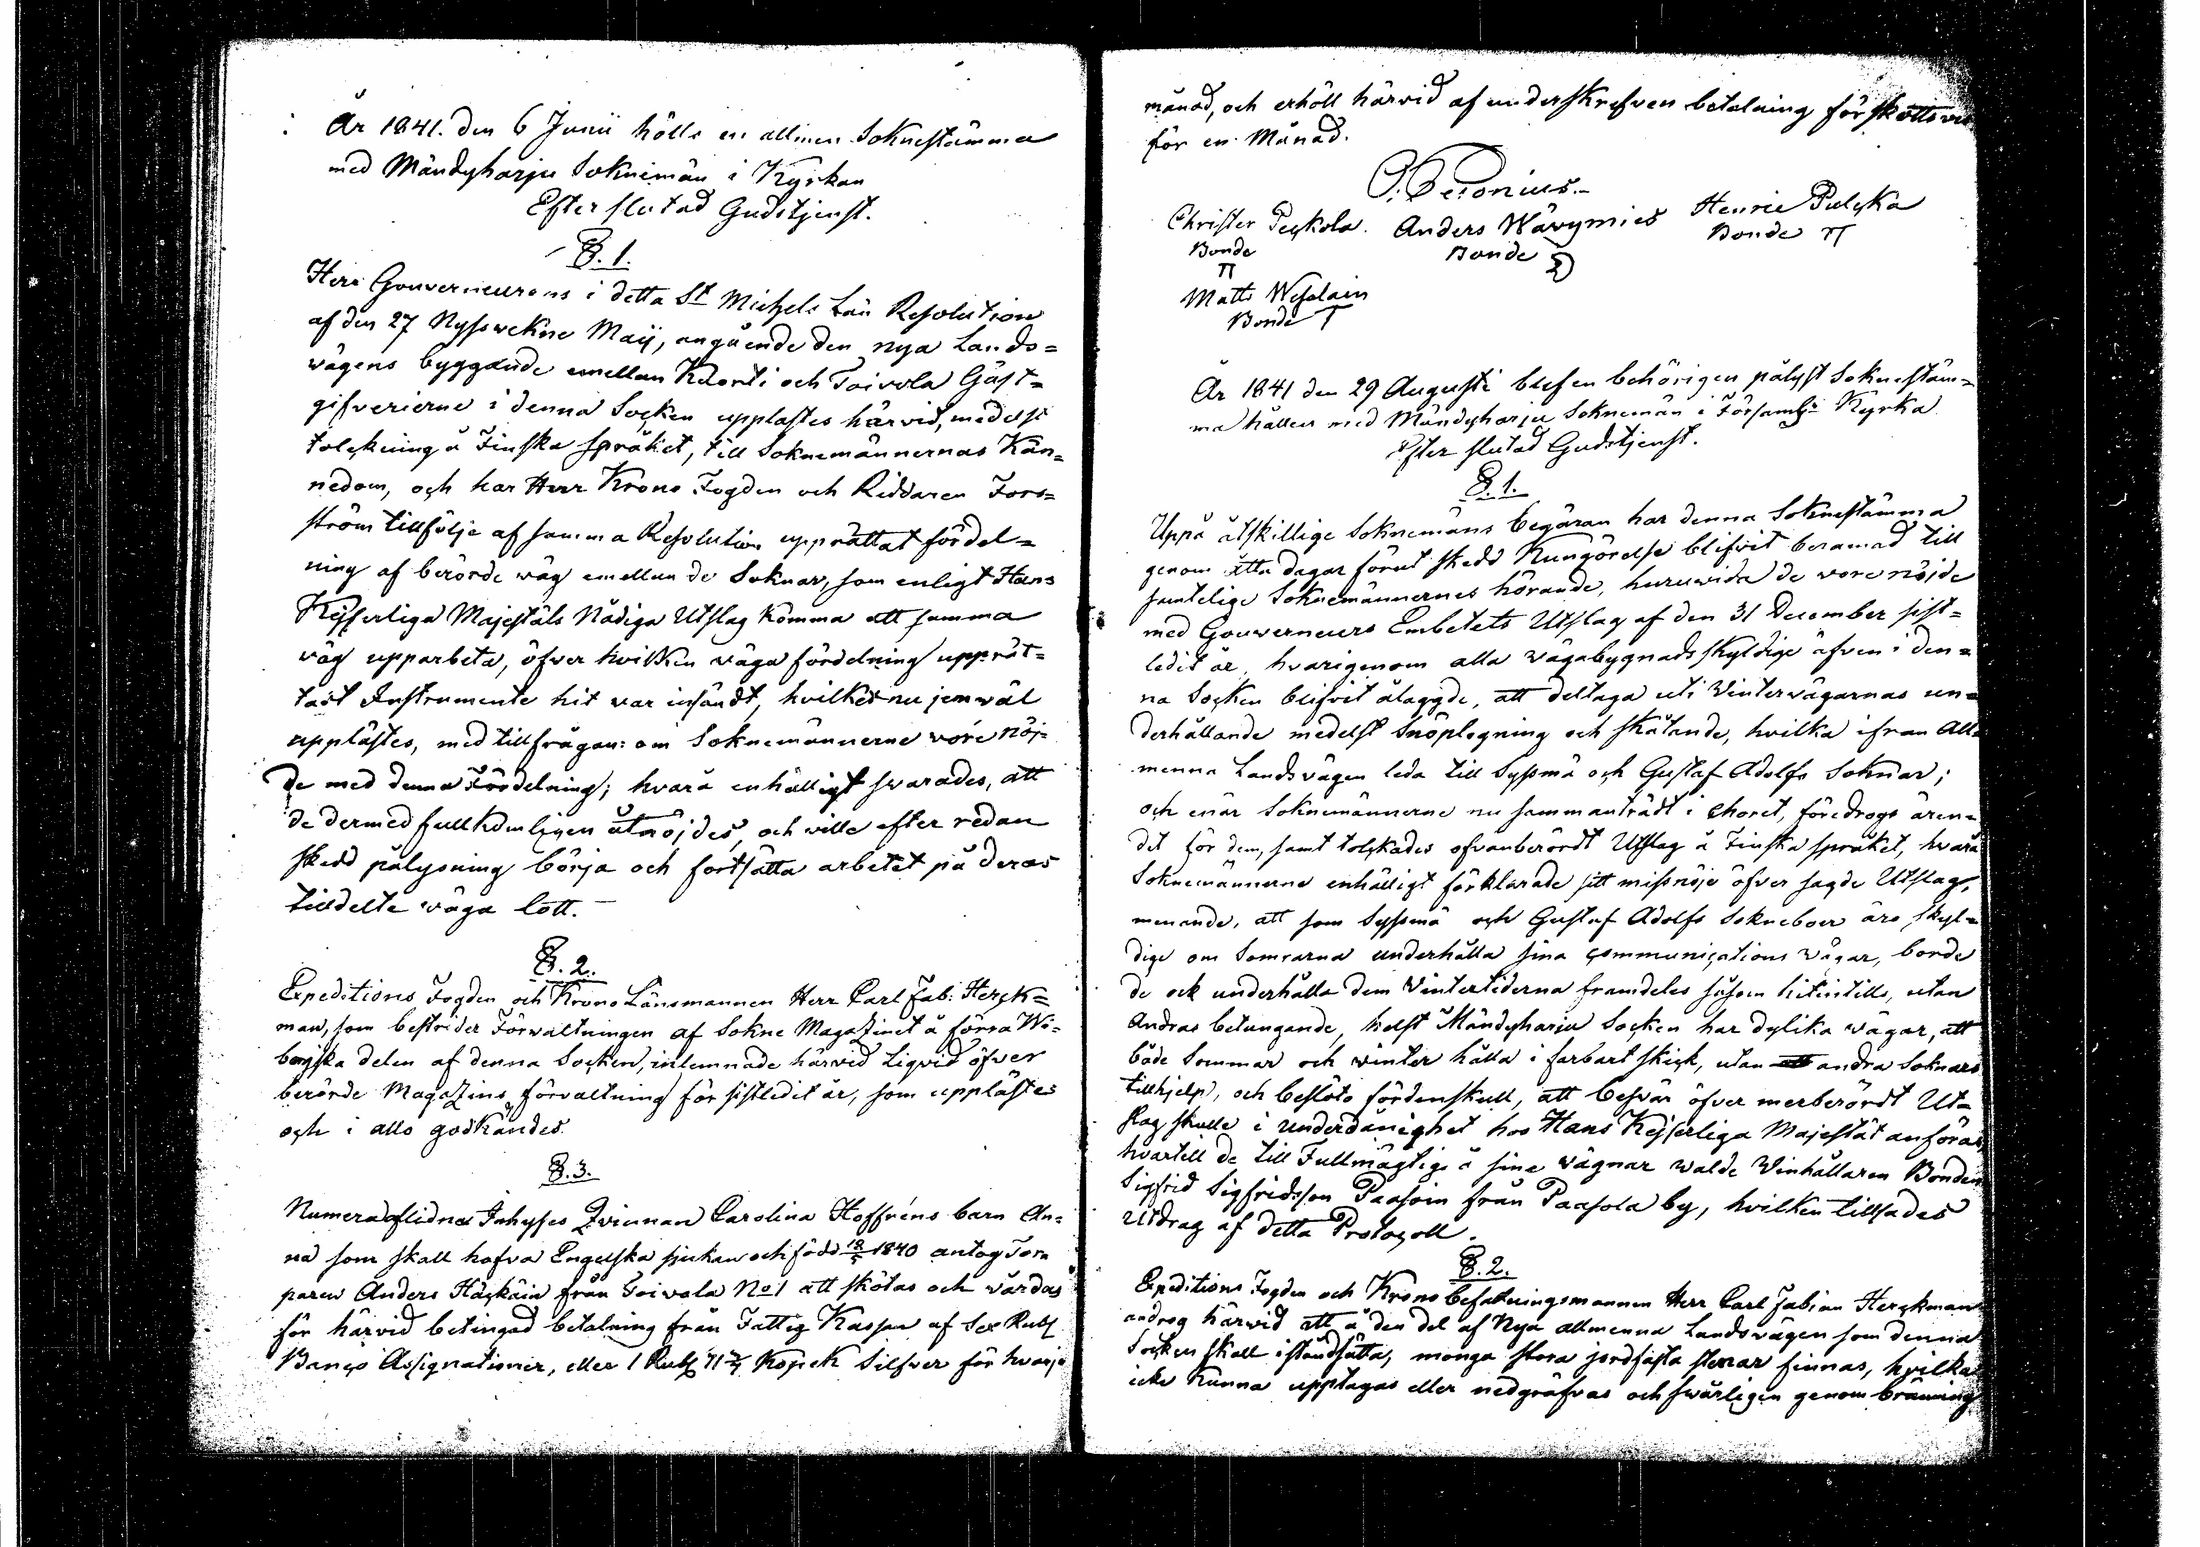 År 1841. den 6 Junii hölls en allmen Soknestämma
med Mändyharju Soknemän i Kyrkan
Efter slutad Gudstjenst.
§. 1.
Herr Gouverneurens i detta St Michels Län Resolution
af den 27 Nyssvekne Maij, angående den nya Lands=
vägens byggande emellan Kuorti och Toivola Gäst=
gifverierne i denna Socken upplästes härvid, medelst
tolckning å Finska språket, till Soknemännernas Kän=
nedom, och har Herr Krono Fogden och Riddaren Fors=
ström tillfölje af samma Resolution upprättat fördel=
ning af berörde väg emellan de Soknar, som enligt Hans
Kejserliga Majestäts Nådiga Utslag komma att samma
väg upparbeta, öfver hvilken väga fördelning upprät=
tadt Instrumente hit var insändt, hvilket nu jemwäl
upplästes, med tillfrågan: om Soknemännerne vore nöj=
de med denna Fördelning; hvarå enhälligt svarades, att
de dermed fullkomligen åtnöjdes, och wille efter redan
skedd pålysning börja och fortsätta arbetet på deras
tilldelte väga lott.
§. 2.
Expeditions Fogden och Krono Länsmannen Herr Carl Fab: Herck=
man, som bestrider Förvaltningen af Sokne Magazinet å förra Wi=
borgska delen af denna Socken, inlemnade härvid Liqvid öfver
berörde Magazins förvaltning för sistledit år, som upplästes
och i allo godkändes.
§. 3.
Numera aflidna Inhyses Qvinnan Carolina Hoffréns barn An=
na som skall hafva Engelska sjukan och född 1840 antog Tor
paren Anders Häckäin från Toivola No 1 att skötas och vårdas
för härvid betingad betalning från Fattig Kassan af Sex Rubl
Banco Assignationer, eller 1 Rubl 71 3/7 Kopek Silfver för hvarje
månad, och erhöll härvid af underskrefven betalning förskottsvis
för en Månad.
Christer Peckola. Anders Wärymies Henric Pulcka
Bonde Bonde Bonde
Matts
Bonde
År 1841 den 29 Augusti blef en behörigen pålyst Soknestäm=
ma hållen med Mändyharju Soknemän i Församl:s Kyrka
Efter slutad Gudstjenst.
§. 1.
Uppå åtskillige Soknemäns begäran har denna Soknestämma
genom åtta dagar förut skedd Kungörelse blifvit beramad till
samtelige Soknemännernes hörande, huruwida de vore nöjde
med Gouverneurs Embetets Utslag af den 31 December sist=
ledit år, hvarigenom alla vägabygnadsskyldige äfven i den=
na Socken blifvit ålaggde, att deltaga uti Vintervägarnas un=
derhållande medelst snöplogning och skåtande, hvilka ifran All=
menna Landsvägen leda till Syssmä och Gustaf Adolfs Soknar;
och enär Soknemännerne nu sammanträdt i Choret, föredrogs ären=
det för dem, samt tolckades ofvanberördt Utslag å Finska språket, hvarå
Soknemännerne enhälligt förklarade sitt missnöje öfver sagde Utslag,
menande, att som Syssmä och Gustaf Adolfs Sokneboer äro skyl=
dige om Somrarna underhålla sina communications vägar, borde
de ock underhålla dem Vintertiderna framdeles såsom hitintills, utan
Andras betungande, helst Mändyharju Socken har dylika vägar, att
både Sommar och winter hålla i farbart skick, utan att andra Soknars
tillhjelp, och beslöto fördenskull, att besvär öfver merberördt Ut=
slag skulle i underdånighet hos Hans Kejserliga Majestät anföras,
hvartill de till Fullmägtige å sine vägnar walde Vinhållaren Bonden
Sigfrid Sigfridsson Paasoin från Paasola by, hvilken tillsades
Utdrag af detta Protocoll.
§. 2.
Expeditions Fogden och Krono befallningsmannen Herr Carl Fabian Herckman
androg härwid att å den del af Nya allmenna Landsvägen som denna
Socken skall iståndsätta, monga stora jordfasta stenar finnas, hvilka
icke kunna upptagas eller nedgräfvas och swårligen genom bränning